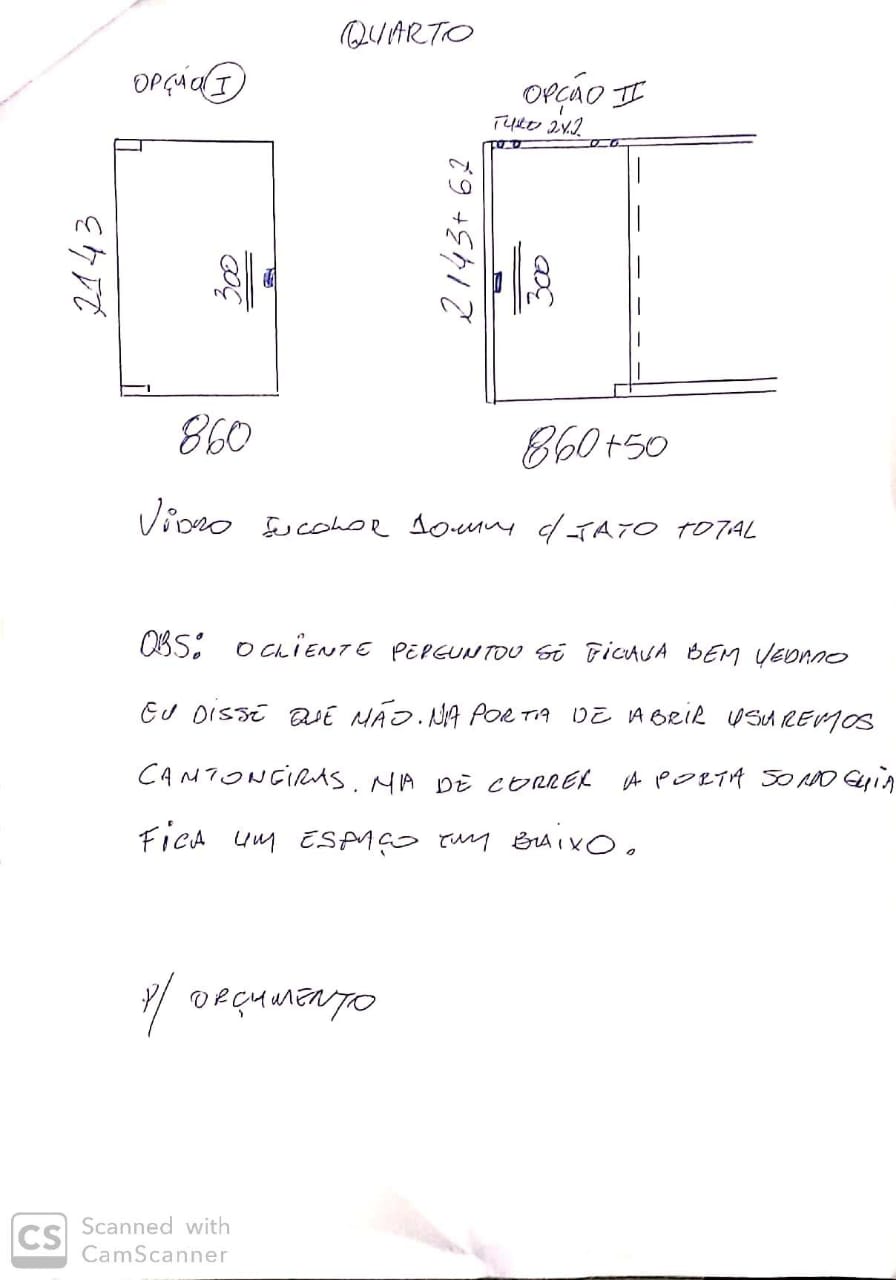 QUARTO
OPÇÃO I
OPÇÃO II
TUBO 2x2
2143
300
860
2143+62
300
860+50
VIDRO INCOLOR 10mm c/ JATO TOTAL
OBS: O CLIENTE PERGUNTOU SE FICAVA BEM VEDADO
EU DISSE QUE NÃO. NA PORTA DE ABRIR USAREMOS
CANTONEIRAS. NA DE CORRER A PORTA SO NO GUIA
FICA UM ESPAÇO EM BAIXO.
P/ ORÇAMENTO
CS
Scanned with
CamScanner